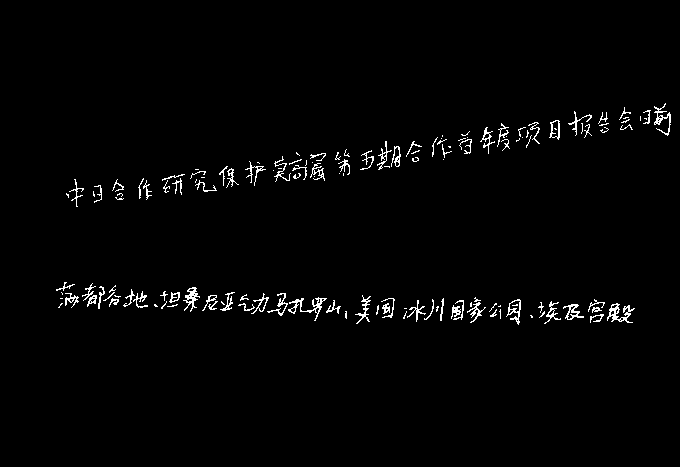 中日合作研究保护莫高窟第五期合作首年度项目报告会日前
都各地、坦桑尼亚乞力马扎罗山、美国冰川国家公园、埃及宫殿